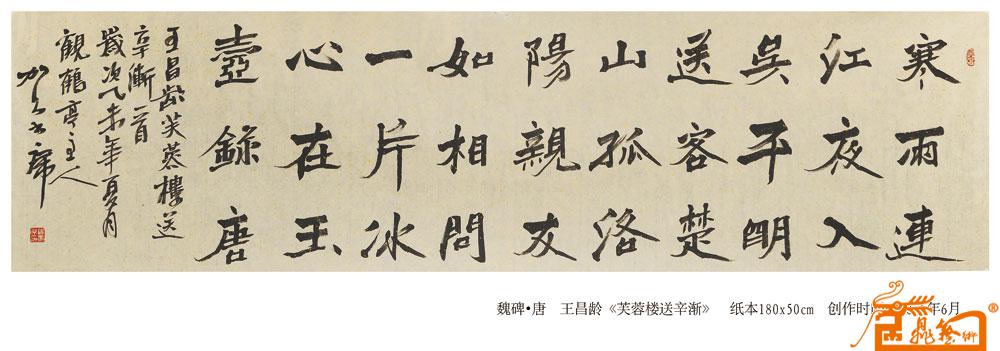 寒雨連
江夜入
吳平明
送客楚
山孤洛
陽親友
如相問
一片冰
心在玉
壺錄唐
王昌龄芙蓉樓送
辛漸一首
歲次乙未年夏月
觀鶴亭主人
魏碑•唐 王昌龄《芙蓉楼送辛渐》 纸本180x50cm 创作时 年6月